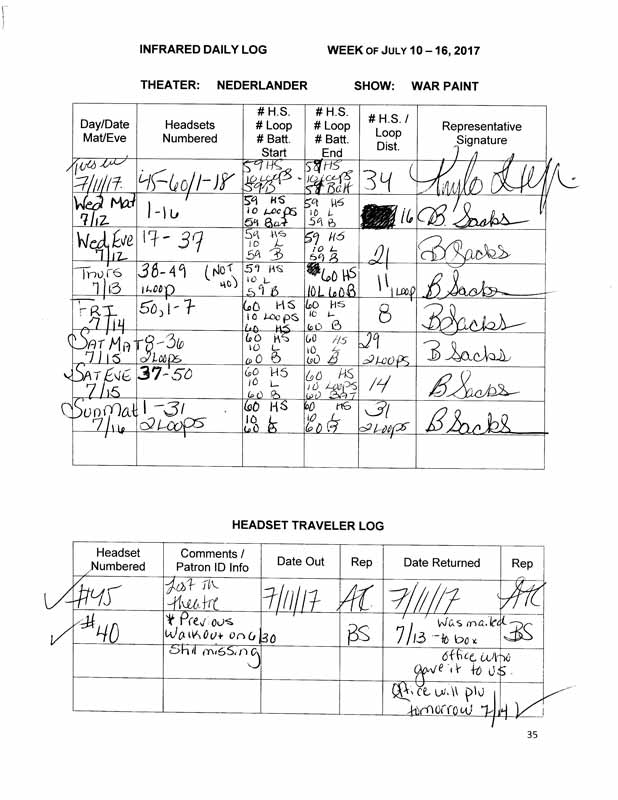 INFRARED DAILY LOG WEEK OF JULY 10 – 16, 2017
THEATER: NEDERLANDER SHOW: WAR PAINT
Day/Date Mat/Eve
Headsets Numbered
# H.S. # Loop # Batt. Start
# H.S. # Loop # Batt. End
# H.S. / Loop Dist.
Representative Signature
Tues Eve 7/11/17 45-60/1-18 59 HS 10 Loops 59 B 58 HS 10 Loops 58 Batt 34
Wed Mat 7/12 1-16 59 HS 10 LOOPS 59 Bat 59 HS 10 L 59 B 16 B. Sacks
Wed Eve 7/12 17-37 59 HS 10 L 59 B 59 HS 10 L 59 B 21 B Sacks
Thurs 7/13 38-49 (NOT 40) 1 LOOP 59 HS 10 L 59 B 60 HS 10 L 60 B 11 1 Loop B Sacks
FRI 7/14 50, 1-7 60 HS 10 LOOPS 60 HS 60 HS 10 L 60 B 8 B Sacks
SAT MAT 7/15 8-36 2 LOOPS 60 HS 10 L 60 B 60 HS 10 L 60 B 29 2 LOOPS B Sacks
SAT EVE 7/15 37-50 60 HS 10 L 60 B 60 HS 10 Loops 60 BAT 14 B Sacks
Sun Mat 7/16 1-31 2 LOOPS 60 HS 10 L 60 B 60 HS 10 L 60 B 31 2 Loops B Sacks
HEADSET TRAVELER LOG
Headset Numbered
Comments / Patron ID Info
Date Out
Rep
Date Returned
Rep
#45 Lost in theatre 7/11/17 7/11/17
#40 * Previous Walkout on 6/30 BS 7/13 was mailed to box BS
Still missing office who gave it to us.
Office will p/u tomorrow 7/14
35